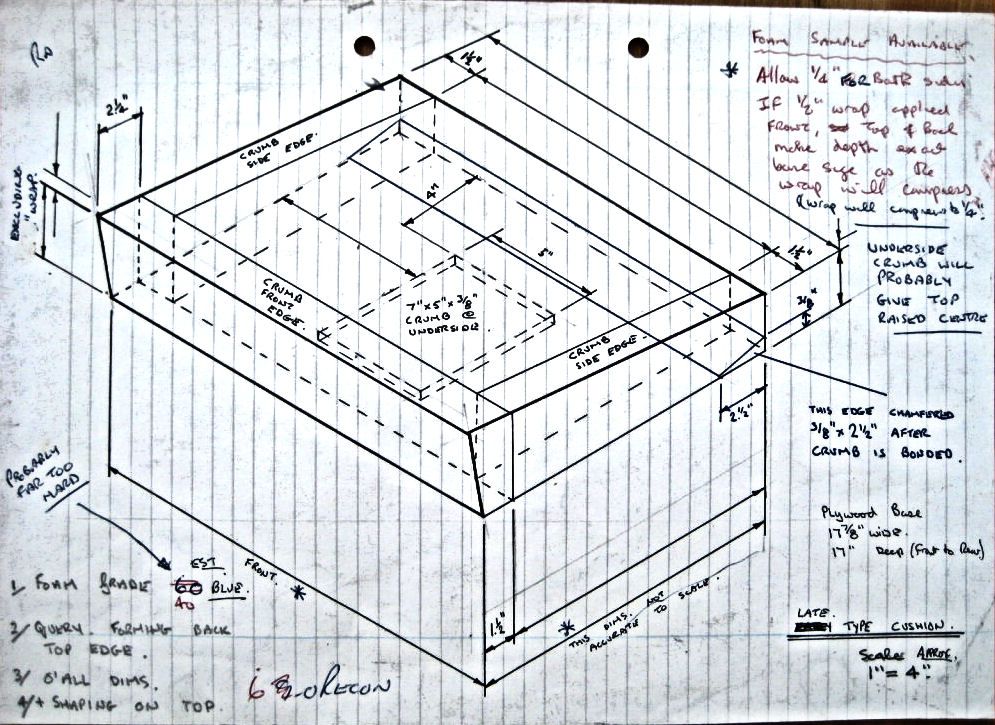 FOAM SAMPLE AVAILABLE.
* Allow 1/4" FOR Both sides
If 1/2" wrap applied
FRONT, Top & Back
make depth exact
base size as the
wrap will compress
(wrap will compress to 1/4".
UNDERSIDE
CRUMB WILL
PROBABLY
GIVE TOP
RAISED CENTRE
1 1/2"
2 1/4"
EXCLUDING
"WRAP.
CRUMB
SIDE EDGE.
4"
5"
1 1/2"
3/8"
CRUMB
FRONT
EDGE.
7" x 5" x 3/8"
CRUMB @
UNDERSIDE.
CRUMB
SIDE EDGE.
2 1/2"
THIS EDGE CHAMFERED
3/8" x 2 1/2" AFTER
CRUMB IS BONDED.
Plywood Base
17 7/8" wide.
17" Deep (Front to Rear)
PROBABLY
FAR TOO
HARD
EST.
FRONT. *
1 FOAM GRADE 60 BLUE.
40
2/ QUERY. FORMING BACK
TOP EDGE.
3/ O'ALL DIMS.
4/ + SHAPING ON TOP.
RECON
1 1/2"
* THIS DIMS. NOT
ACCURATE TO SCALE.
LATE.
TYPE CUSHION.
Scale APROX.
1" = 4".